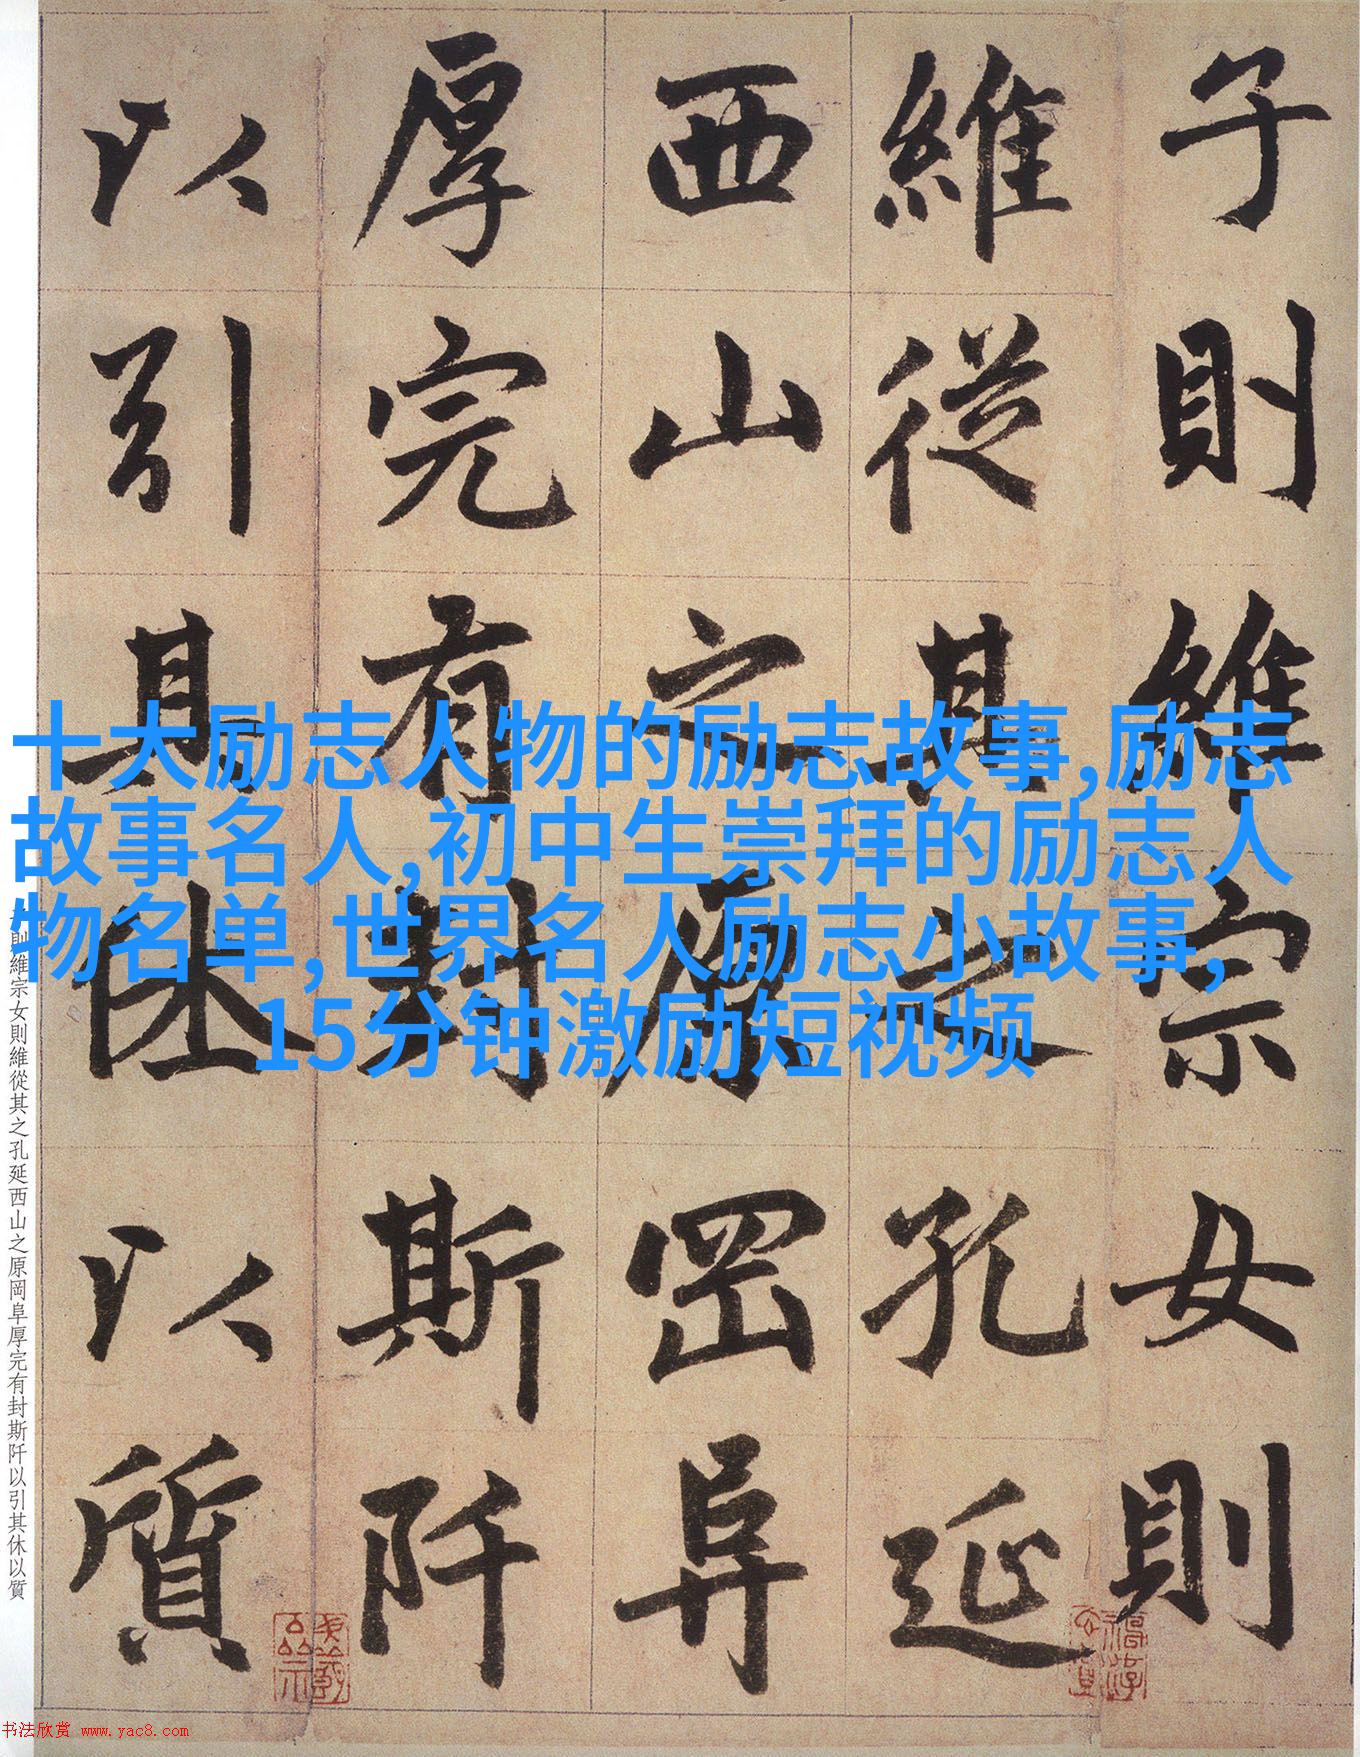 子則維宗女則
維從其之孔延
西山之原罡阜
厚完有封斯阡
以引其休以質
十大励志人物的励志故事,励志
故事名人,初中生崇拜的励志人
物名单,世界名人励志小故事,
15分钟激励短视频
則維宗女則維從其之孔延西山之原岡阜厚完有封斯阡以引其休以質
书法欣赏 www.yac8.com